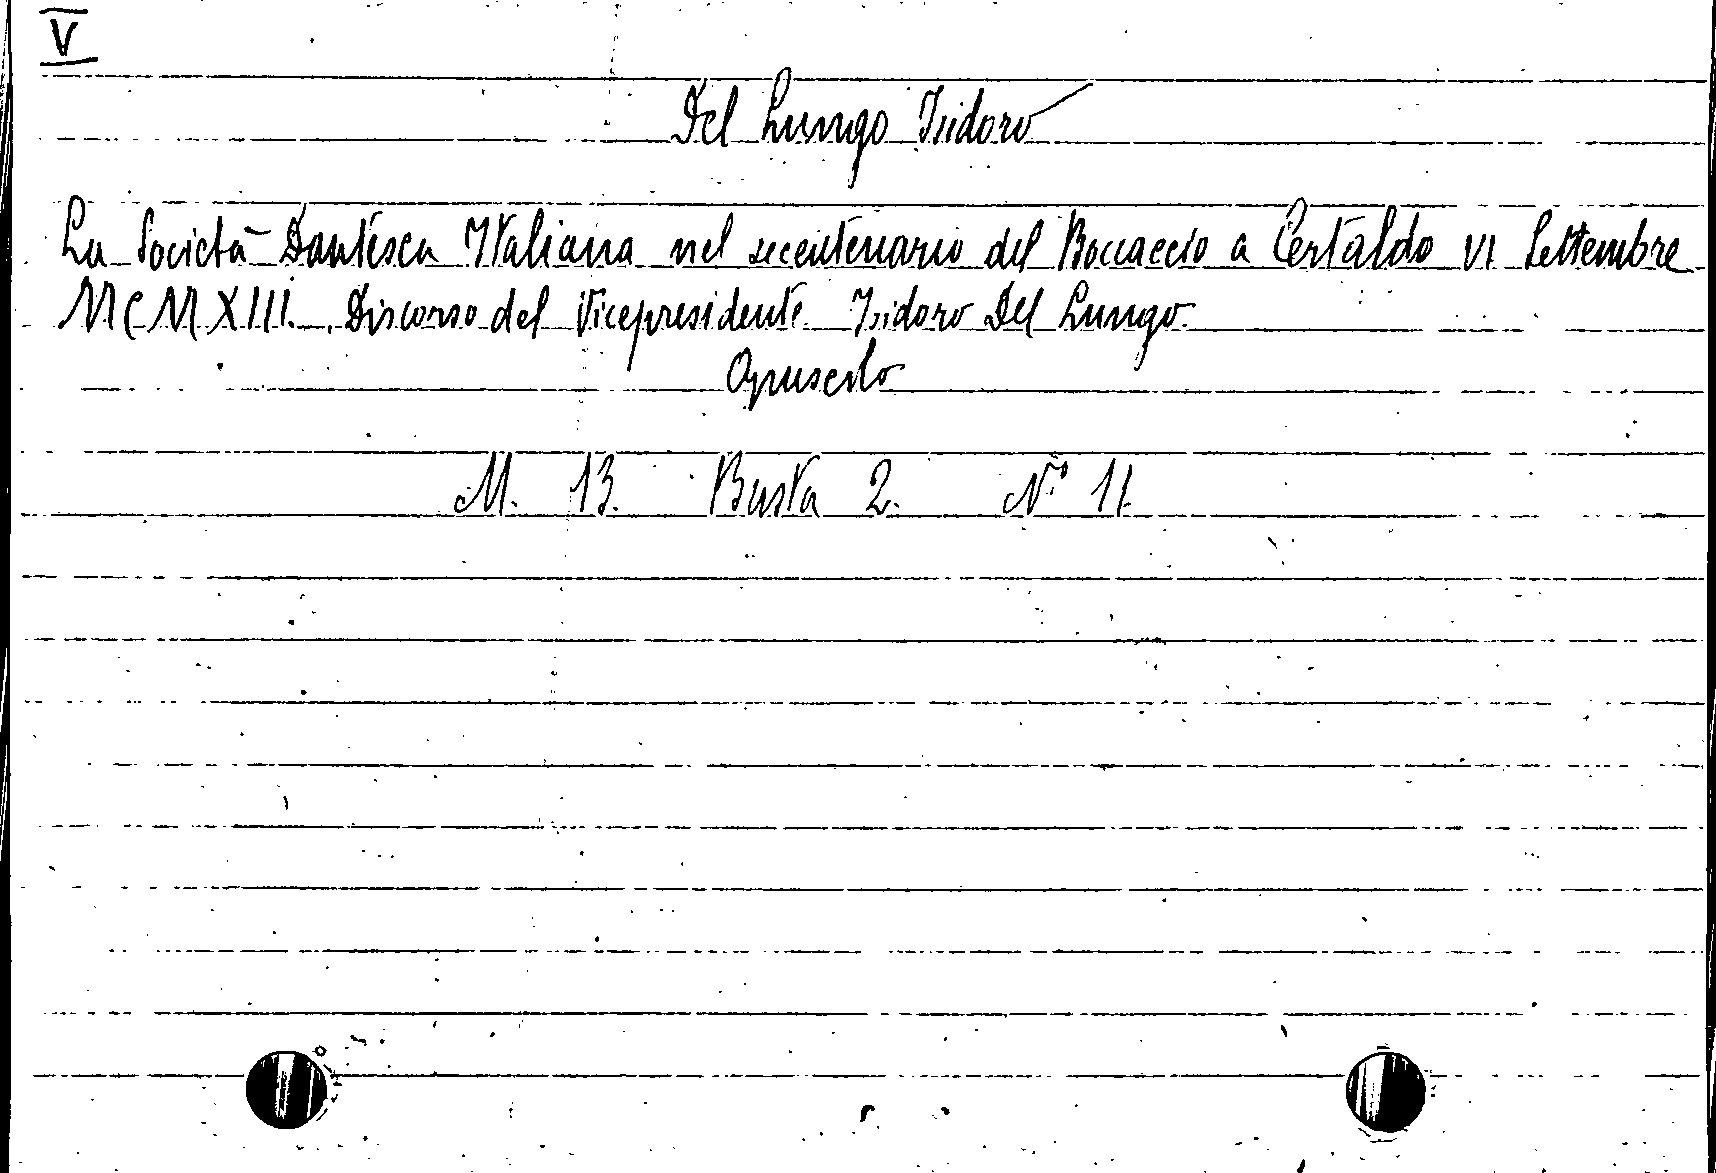 V
Del Lungo Isidoro
La Società Dantesca Italiana nel secentenario del Boccaccio a Certaldo VI Settembre
MCMXIII. Discorso del Vicepresidente Isidoro Del Lungo.
Opuscolo
M. 13. Busta 2. N° 11.